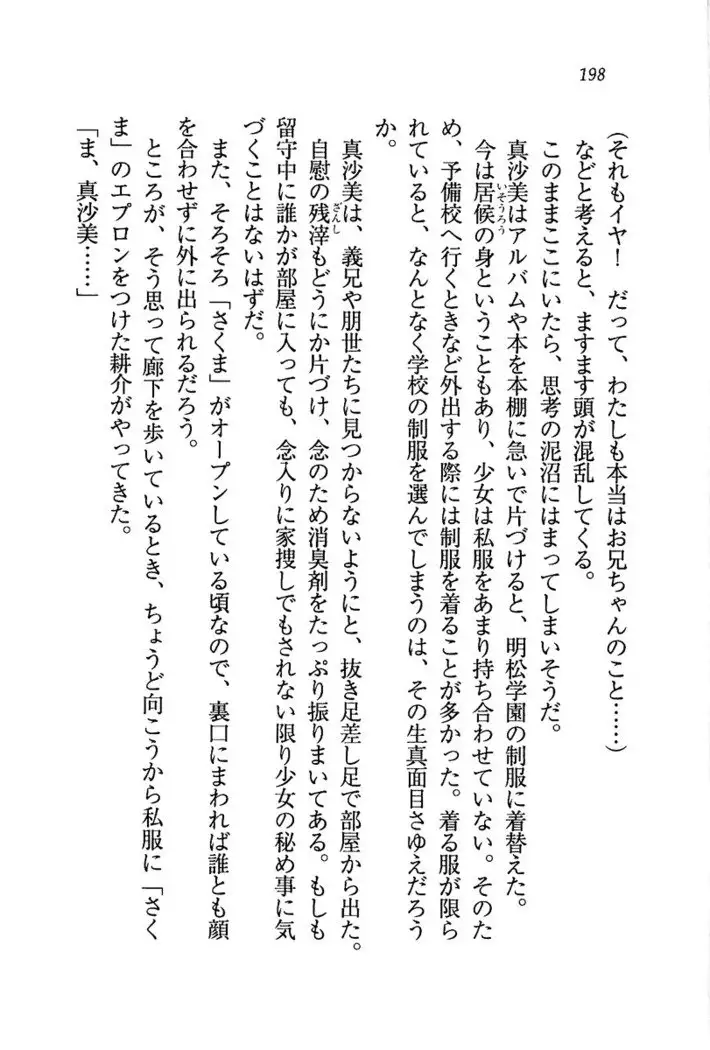 198
(それもイヤ! だって、わたしも本当はお兄ちゃんのこと……)
などと考えると、ますます頭が混乱してくる。
このままここにいたら、思考の泥沼にはまってしまいそうだ。
真沙美はアルバムや本を本棚に急いで片づけると、明松学園の制服に着替えた。
今は居候の身ということもあり、少女は私服をあまり持ち合わせていない。そのた
め、予備校へ行くときなど外出する際には制服を着ることが多かった。着る服が限ら
れていると、なんとなく学校の制服を選んでしまうのは、その生真面目さゆえだろう
か。
真沙美は、義兄や朋世たちに見つからないようにと、抜き足差し足で部屋から出た。
自慰の残滓もどうにか片づけ、念のため消臭剤をたっぷり振りまいてある。もしも
留守中に誰かが部屋に入っても、念入りに家捜しでもされない限り少女の秘め事に気
づくことはないはずだ。
また、そろそろ「さくま」がオープンしている頃なので、裏口にまわれば誰とも顔
を合わせずに外に出られるだろう。
ところが、そう思って廊下を歩いているとき、ちょうど向こうから私服に「さく
ま」のエプロンをつけた耕介がやってきた。
「ま、真沙美……」